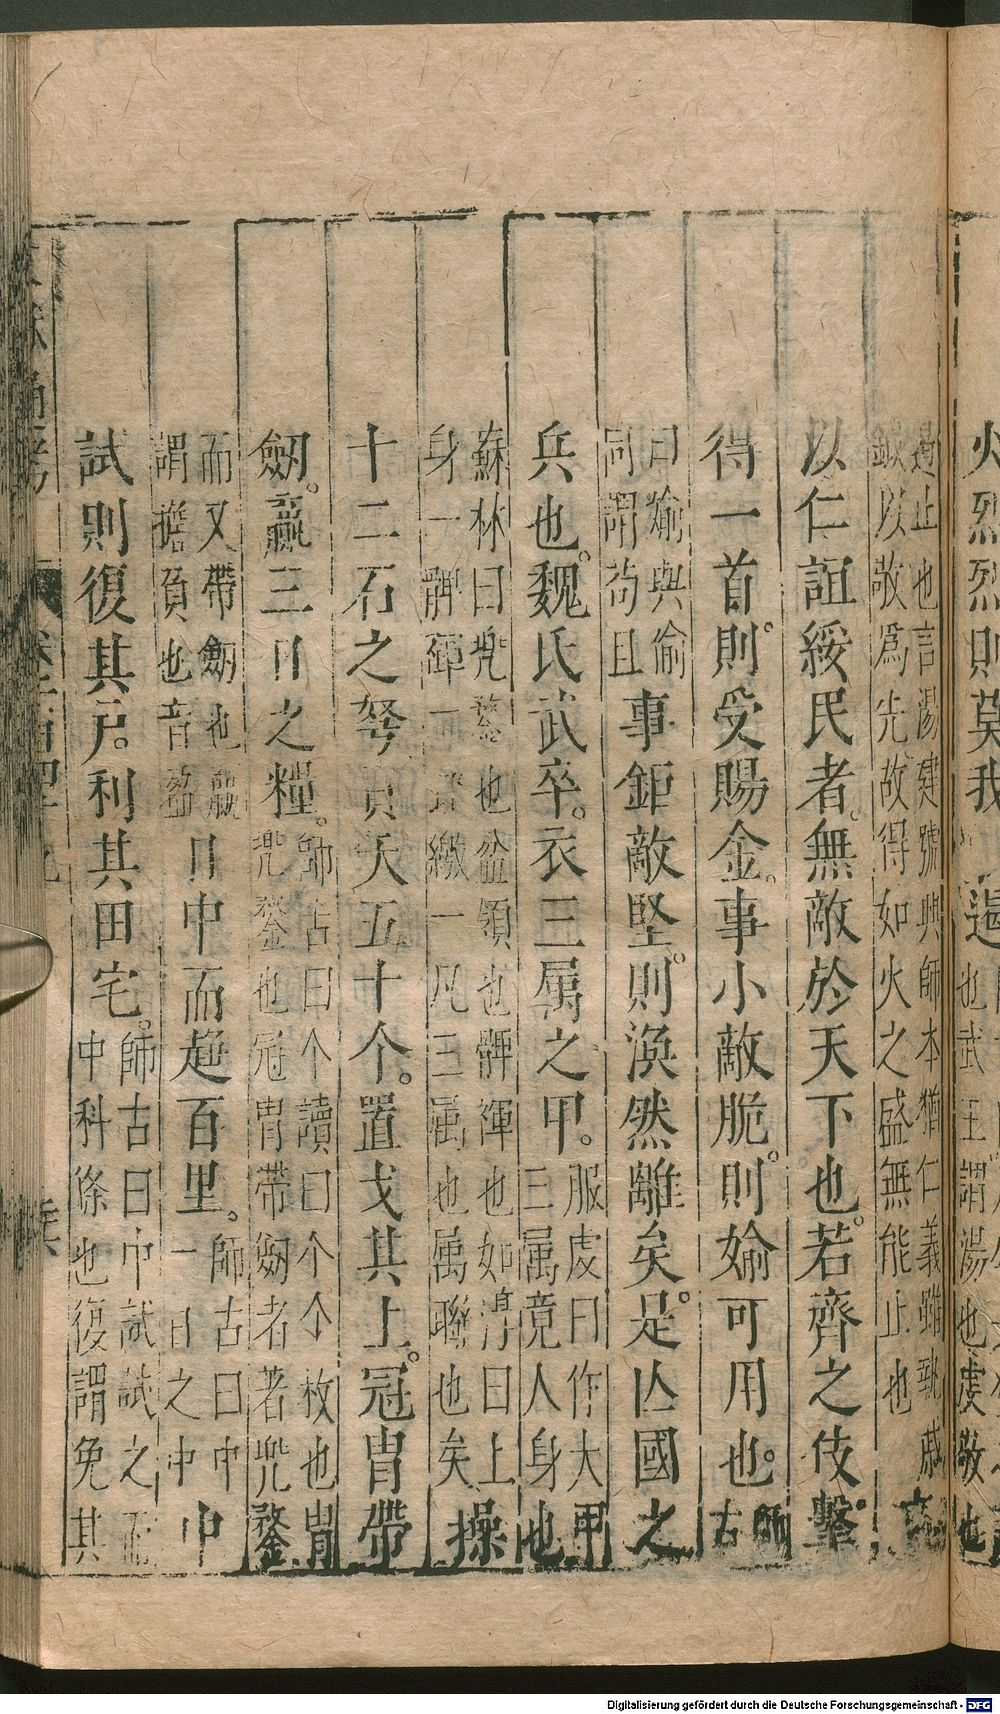 火烈烈則莫我 遏
也武王謂湯也虔敬也
遏止也言湯建號興師本猶仁義雖執戚
鉞以敬爲先故得如火之盛無能止也
以仁誼綏民者無敵於天下也若齊之伎擊
得一首則受賜金事小敵脆則媮可用也師古
曰媮與偷
同謂苟且
事鉅敵堅則渙然離矣是亾國之
兵也魏氏武卒衣三属之甲服虔曰作大甲
三属竟人身也
蘇林曰兠鍪也盆領也髀褌也如淳曰上
身一髀褌一 繳一凡三属也属聯也矣
操
十二石之弩 矢五十个置戈其上冠冑帶
劔贏三日之糧師古曰个讀曰个个枚也冑
兠鍪也冠冑帶劔者著兠鍪
而又帶劔也贏
謂擔負也音盈
日中而趍百里師古曰中
一日之中
中
試則復其戸利其田宅師古曰中試試之而
中科條也復謂免其
文獻通考
兵
Digitalisierung gefördert durch die Deutsche Forschungsgemeinschaft - DFG